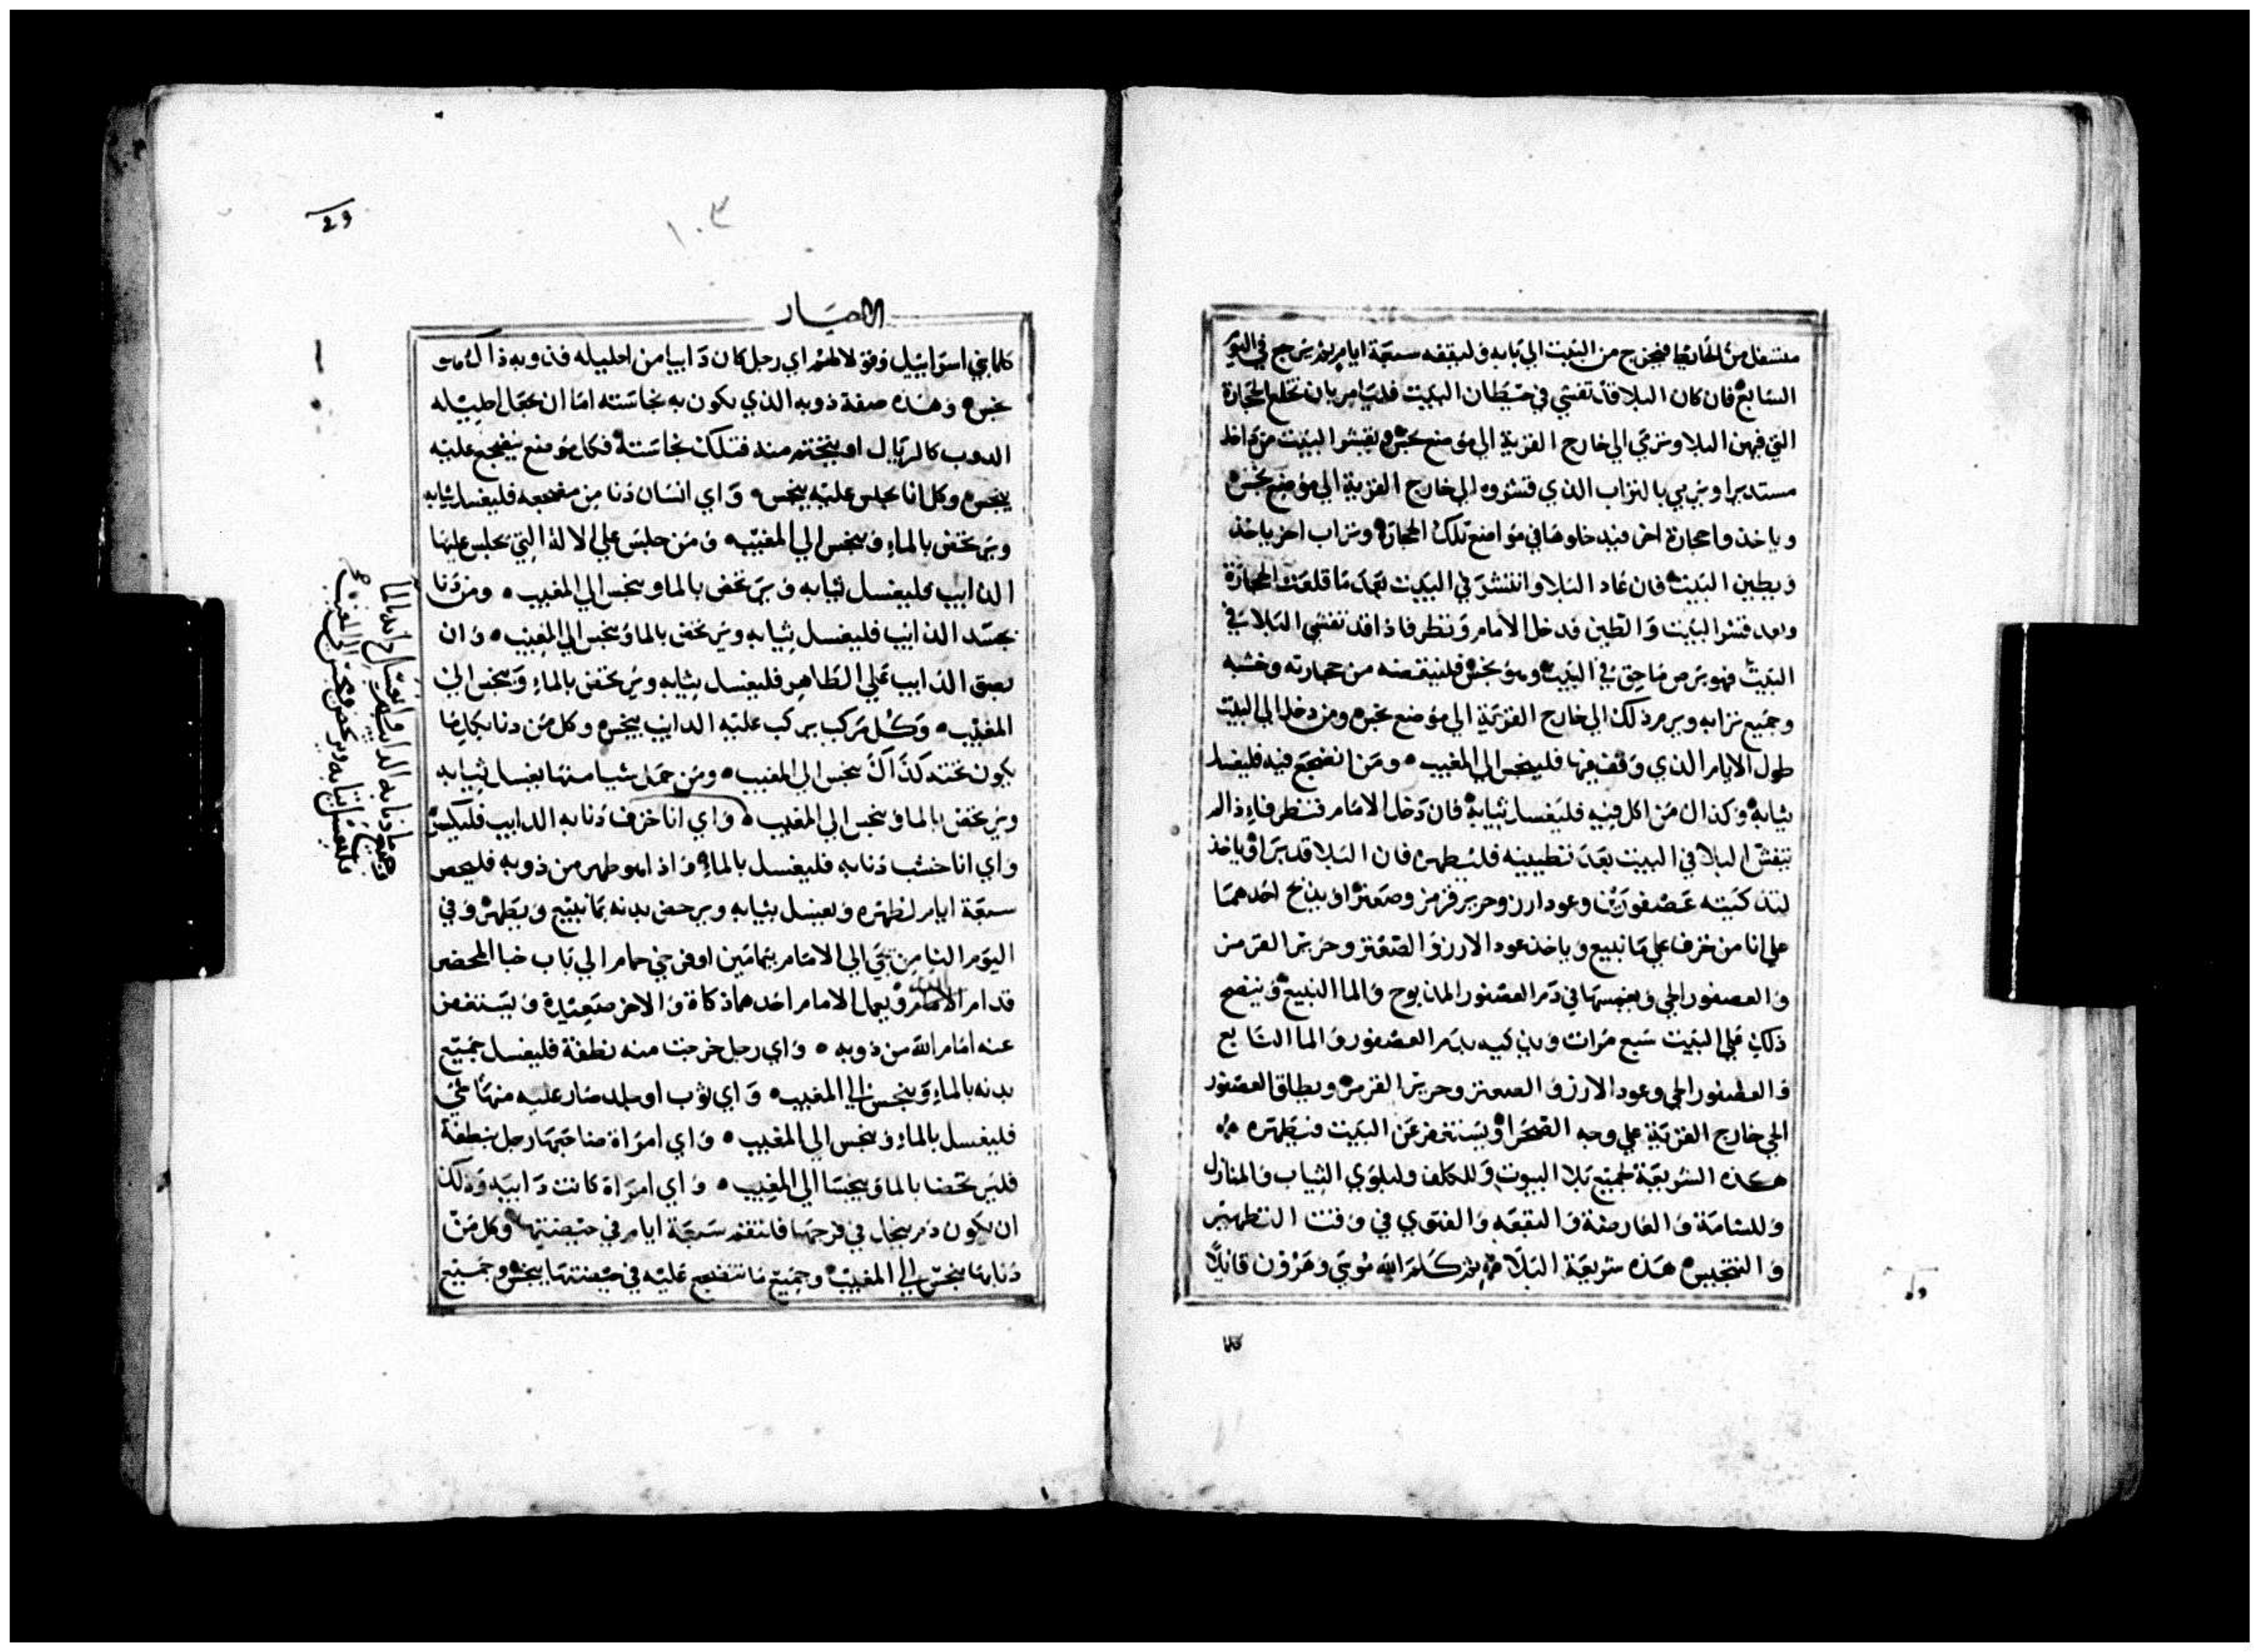 مستفل من الحايط فيخرج من البيت الي بابه وليقفه سبعة ايام ثم يرجع في اليوم
السابع فان كان البلا قد تفشي في حيطان البيت فليامر بان تخلع الحجارة
التي فيهن البلا وترمي الي خارج القرية الي موضع نجس ويقشر البيت من داخل
مستديرا ويرمي بالتراب الذي قشروه الي خارج القرية الي موضع نجس
وياخذوا حجارة اخر فيدخلوها في مواضع تلك الحجارة وتراب اخر ياخذ
ويطين البيت فان عاد البلا وانتشر في البيت بعد ما قلعت الحجارة
وبعد قشر البيت والطين فدخل الامام ونظر فاذا قد تفشي البلا في
البيت فهو برص ماحق في البيت وهو نجس فلينقضه من حجارته وخشبه
وجميع ترابه ويرم ذلك الي خارج القرية الي موضع نجس ومن دخل الي البيت
طول الايام الذي وقف فيها فلينجس الي المغيب ومن انضجع فيه فليغسل
ثيابه وكذاك من اكل فيه فليغسل ثيابه فان دخل الامام فنظر فاذا لم
يتفش البلا في البيت بعد تطيينه فليطهره فان البلا قد برا وياخذ
لتذكيته عصفورين وعود ارز وحرير قرمز وصعتر ويذبح احدهما
علي انا من خزف علي ما نبيع وياخذ عود الارز والصعتر وحرير القرمز
والعصفور الحي ويغمسها في دم العصفور المذبوح والما النبيع وينضح
ذلك علي البيت سبع مرات ويذكيه بدم العصفور والما النابع
والعصفور الحي وعود الارز والصعتر وحرير القرمز ويطلق العصفور
الحي خارج القرية علي وجه الصحرا ويستغفر عن البيت فيطهره
هكذه الشريعة لجميع بلا البيوت وللكلف ولبلوي الثياب والمنازل
وللشامة والعارضة والبقعه والفتوي في وقت التطهير
والتنجيس هذه شريعة البلا ثم كلم الله موسي وهرون قايلا
كلما
الاحبار
١٠٣
كلما بني اسراييل وقولا لهم اي رجل كان دايبا من احليله فذوبه ذاك هو
نجس وهذه صفة ذوبه الذي يكون به نجاسته اما ان يحمل احليله
الذوب كالريال او يختتم منه فتلك نجاسته فكل موضع ينضجع عليه
ينجس وكل انا يجلس عليه ينجس واي انسان دنا من مضجعه فليغسل ثيابه
ويرتحض بالماء وينجس الي المغيب ومن جلس علي الالة التي يجلس عليها
الدايب فليغسل ثيابه ويرتحض بالما وينجس الي المغيب ومن دنا
بجسد الذايب فليغسل ثيابه ويرتحض بالما وينجس الي المغيب وان
بصق الذايب علي الطاهر فليغسل ثيابه ويرتحض بالماء وينجس الي
المغيب وكل مركب يركب عليه الدايب ينجس وكل من دنا بكل ما
يكون تحته كذاك ينجس الي المغيب ومن حمل شيا منها يغسل ثيابه
ويرتحض بالما وينجس الي المغيب واي انا خزف دنا به الدايب فليكسر
واي انا خشب دنا به فليغسل بالماء واذا هو طهر من ذوبه فليحص
سبعة ايام لطهره ويغسل ثيابه ويرحض بدنه بما نبيع ويطهر وفي
اليوم الثامن يجي الي الامام بيمامين او فرخي حمام الي باب خبا المحضر
قدام الله ويعمل الامام احدهما ذكاة والاخر صعيدة ويستغفر
عنه امام الله من ذوبه واي رجل خرجت منه نطفة فليغسل جميع
بدنه بالماء وينجس الي المغيب واي ثوب او جلد صار عليه منها شي
فليغسل بالماء وينجس الي المغيب واي امراة ضاجعها رجل بنطفة
فليرتحضا بالما وينجسا الي المغيب واي امراة كانت دايبة وذلك
ان يكون دم ينجل في فرجها فلتقم سبعة ايام في حيضتها وكل من
دنا بها ينجس الي المغيب وجميع ما تنضجع عليه في حيضتها ينجس وجميع